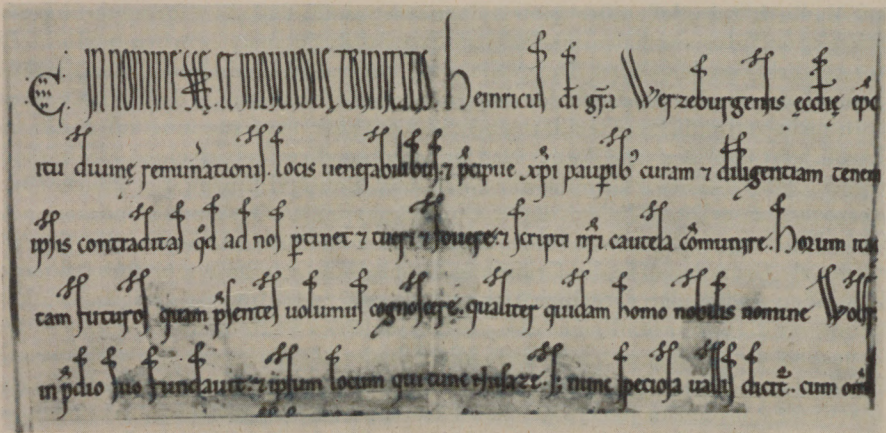 C. IN NOMINE SCĘ. ET INDIUIDUĘ TRINITATIS. Heinricus di gra Werzeburgensis ęcclię epc
itu diuinę remunerationis. locis uenerabilibus ⁊ pcipue xpi paupib' curam ⁊ diligentiam tenem
ipsis contraditas qd ad nos ptinet ⁊ tueri ⁊ fouere. ⁊ scripti nri cautela comunire. Horum itaq
tam futuros quam psentes uolumus cognoscere. qualiter quidam homo nobilis nomine Wolff
in pdio suo fundauit. ⁊ ipsum locum qui tunc nunc speciosa uallis dicit. cum om